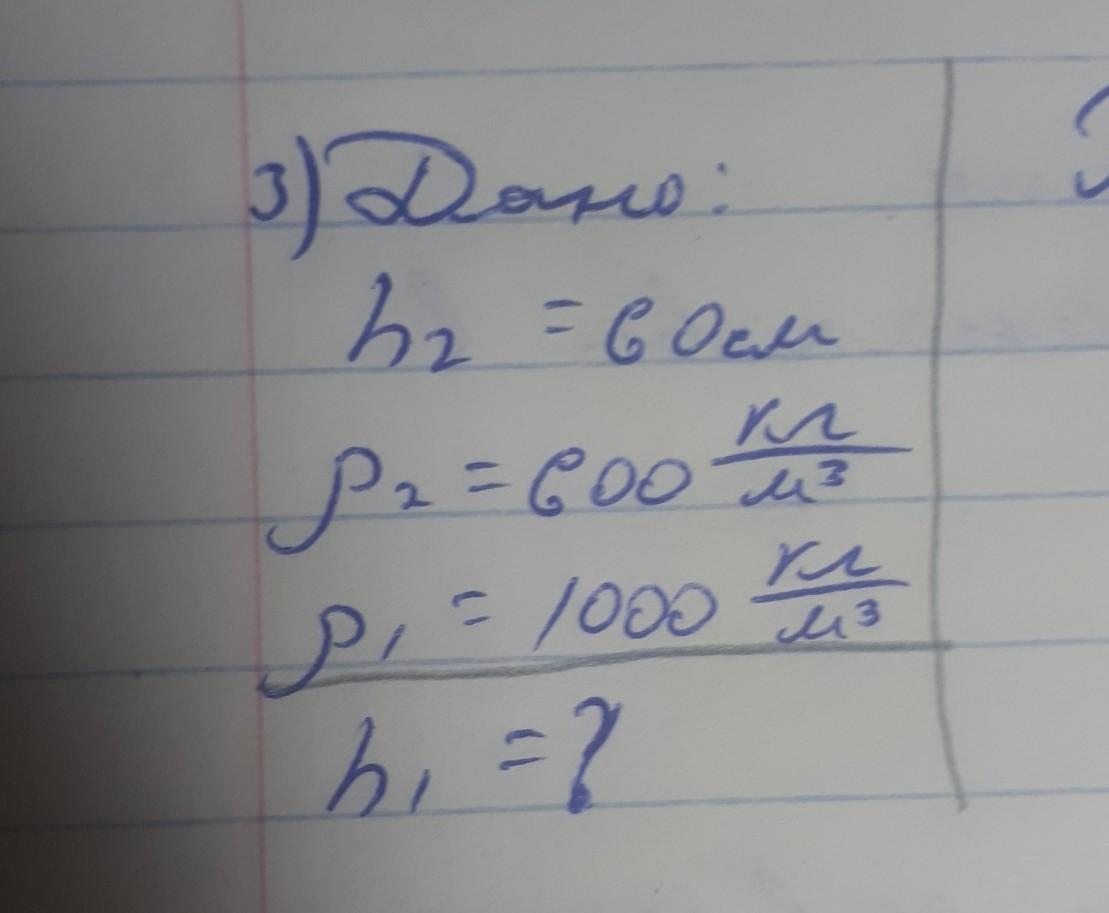 3) Дано:
h₂ = 60см
ρ₂ = 600 кг/м³
ρ₁ = 1000 кг/м³
h₁ = ?